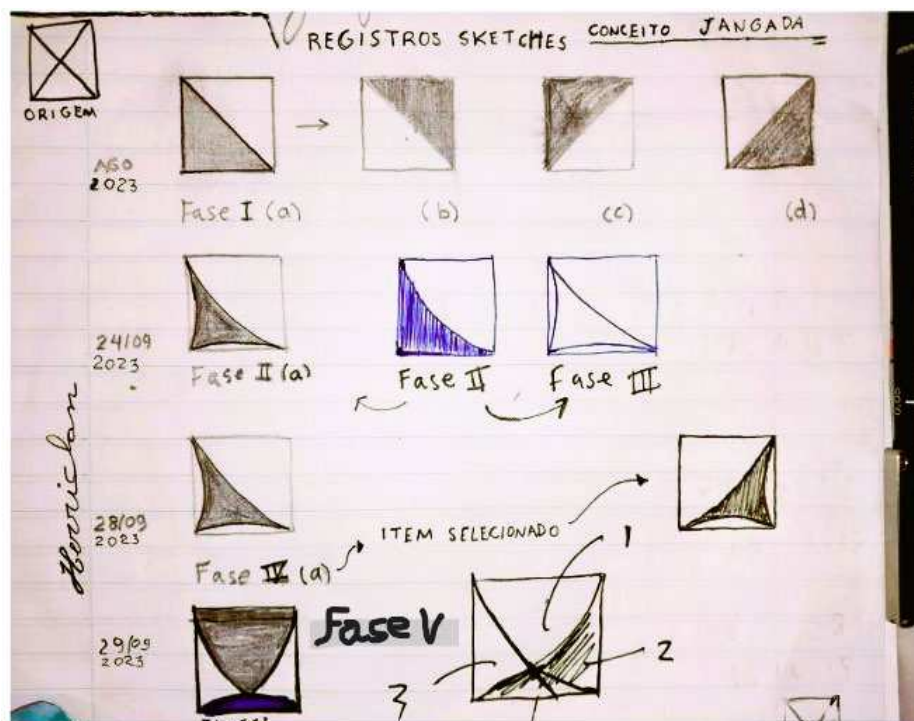 REGISTROS SKETCHES CONCEITO JANGADA
ORIGEM
AGO
2023
Fase I (a)
(b)
(c)
(d)
24/09
2023
Fase II (a)
Fase II
Fase III
28/09
2023
ITEM SELECIONADO
1
Fase IV (a)
29/09
2023
Fase V
2
3